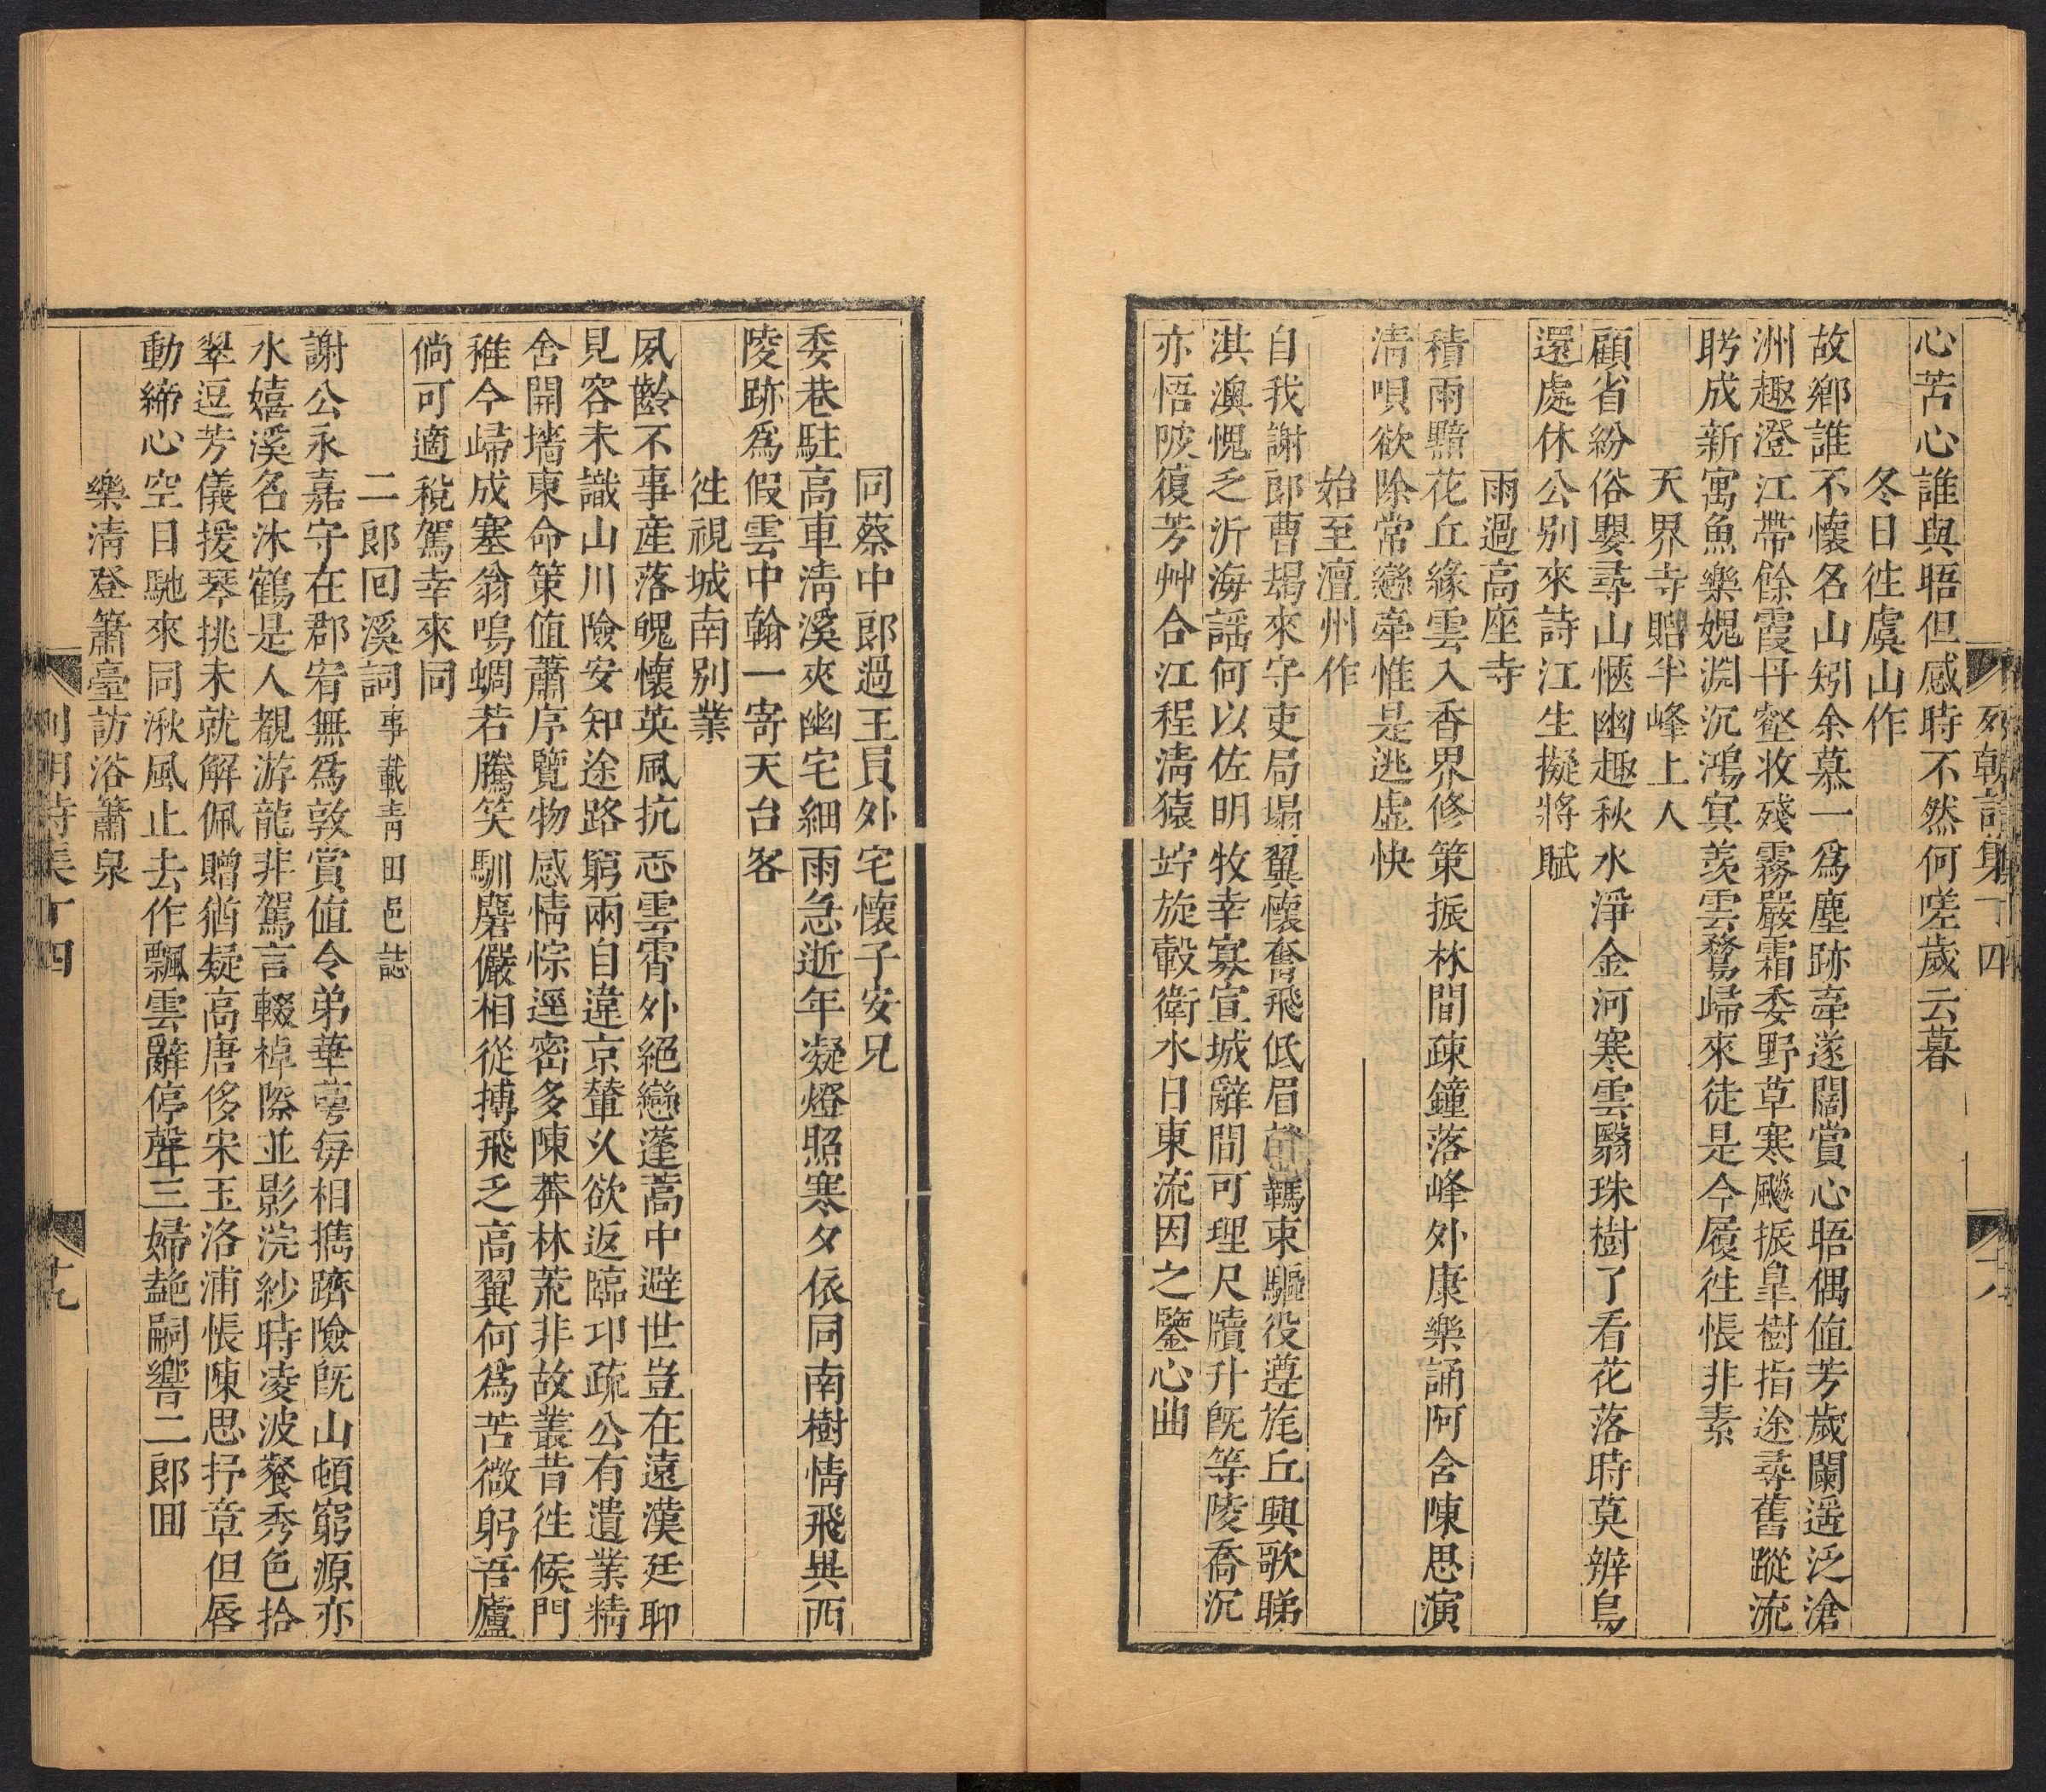 列朝詩集丁四
心苦心誰與晤但感時不然何嗟歲云暮
冬日徃虞山作
故鄉誰不懷名山矧余慕一爲塵跡牽遂闊賞心晤偶值芳歲闌遥泛滄
洲趣澄江帶餘霞丹壑收殘霧嚴霜委野草寒飈振皐樹指途尋舊蹤流
眄成新寓魚樂媿淵沉鴻㝠羨雲騖歸來徒是今履徃悵非素
天界寺贈半峰上人
顧省紛俗嬰尋山愜幽趣秋水淨金河寒雲翳珠樹了看花落時莫辨鳥
還處休公别來詩江生擬將賦
雨過高座寺
積雨黯花丘緣雲入香界修策振林間疎鐘落峰外康樂誦阿含陳思演
淸唄欲除常戀牽惟是逃虛快
始至澶州作
自我謝郎曹朅來守吏局塌翼懷奮飛低眉羈束驅役遵旄丘興歌睇
淇澳愧乏沂海謡何以佐明牧幸寡宣城辭間可理尺牘升旣等陵喬沉
亦悟陂復芳艸合江程淸猿竚旋轂衛水日東流因之鑒心曲
同蔡中郎過王員外宅懷子安兄
委巷駐高車淸溪夾幽宅細雨急逝年凝燈照寒夕依同南樹情飛異西
陵跡爲假雲中翰一寄天台客
徃視城南别業
夙齡不事産落魄懷英風抗志雲霄外絕戀蓬蒿中避世豈在遠漢廷聊
見容未識山川險安知途路窮兩自違京輦乆欲返臨卭疏公有遺業精
舍開墻東命策值蕭序覽物感情悰逕密多陳莾林荒非故叢昔徃候門
稚今歸成塞翁鳴蜩若騰笑馴麏儼相從摶飛乏高翼何爲苦微躬吾廬
倘可適稅駕幸來同
二郎回溪詞事載靑田邑誌
謝公永嘉守在郡宥無爲敦賞值令弟華萼每相攜躋險旣山頓窮源亦
水嬉溪名沐鶴是人覩游龍非駕言輟棹際並影浣紗時凌波餐秀色拾
翠逗芳儀援琴挑未就解佩贈猶疑高唐侈宋玉洛浦悵陳思抒章但唇
動締心空日馳來同湫風止去作飄雲辭停聲三婦艶嗣響二郎囬
樂淸登簫臺訪浴簫泉